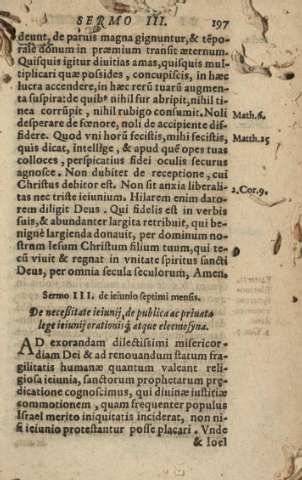 SERMO III. 197
deunt, de paruis magna gignuntur, & tẽpo-
rale donum in præmium transit æternum.
Quisquis igitur diuitias amas, quisquis mul-
tiplicari quæ possides, concupiscis, in hæc
lucra accendere, in hæc rerũ tuarũ augmen-
ta suspira: de quibꝰ nihil fur abripit, nihil ti-
nea corrũpit, nihil rubigo consumit. Noli
desperare de fœnore, noli de accipiente dif-
fidere. Quod vni horũ fecistis, mihi fecistis,
quis dicat, intellige, & apud quẽ opes tuas
colloces, perspicatius fidei oculis securus
agnosce. Non dubitet de receptione, cui
Christus debitor est. Non sit anxia liberali-
tas nec triste ieiunium. Hilarem enim dato-
rem diligit Deus. Qui fidelis est in verbis
suis, & abundanter largita retribuit, qui be-
nignè largienda donauit, per dominum no-
strum Iesum Christum filium tuum, qui te-
cũ viuit & regnat in vnitate spiritus sancti
Deus, per omnia secula seculorum, Amen.
Math.6.
Matth.25
2.Cor.9.
Sermo III. de ieiunio septimi mensis.
De necessitate ieiunij, de publica ac priuata
lege ieiunij orationisq́; atque eleemosyna.
AD exorandam dilectissimi misericor-
diam Dei & ad renouandum statum fra-
gilitatis humanæ quantum valeant reli-
giosa ieiunia, sanctorum prophetarum prę-
dicatione cognoscimus, qui diuinæ iustitiæ
commotionem, quam frequenter populus
Israel merito iniquitatis inciderat, non ni-
si ieiunio protestantur posse placari. Vnde
& Ioel